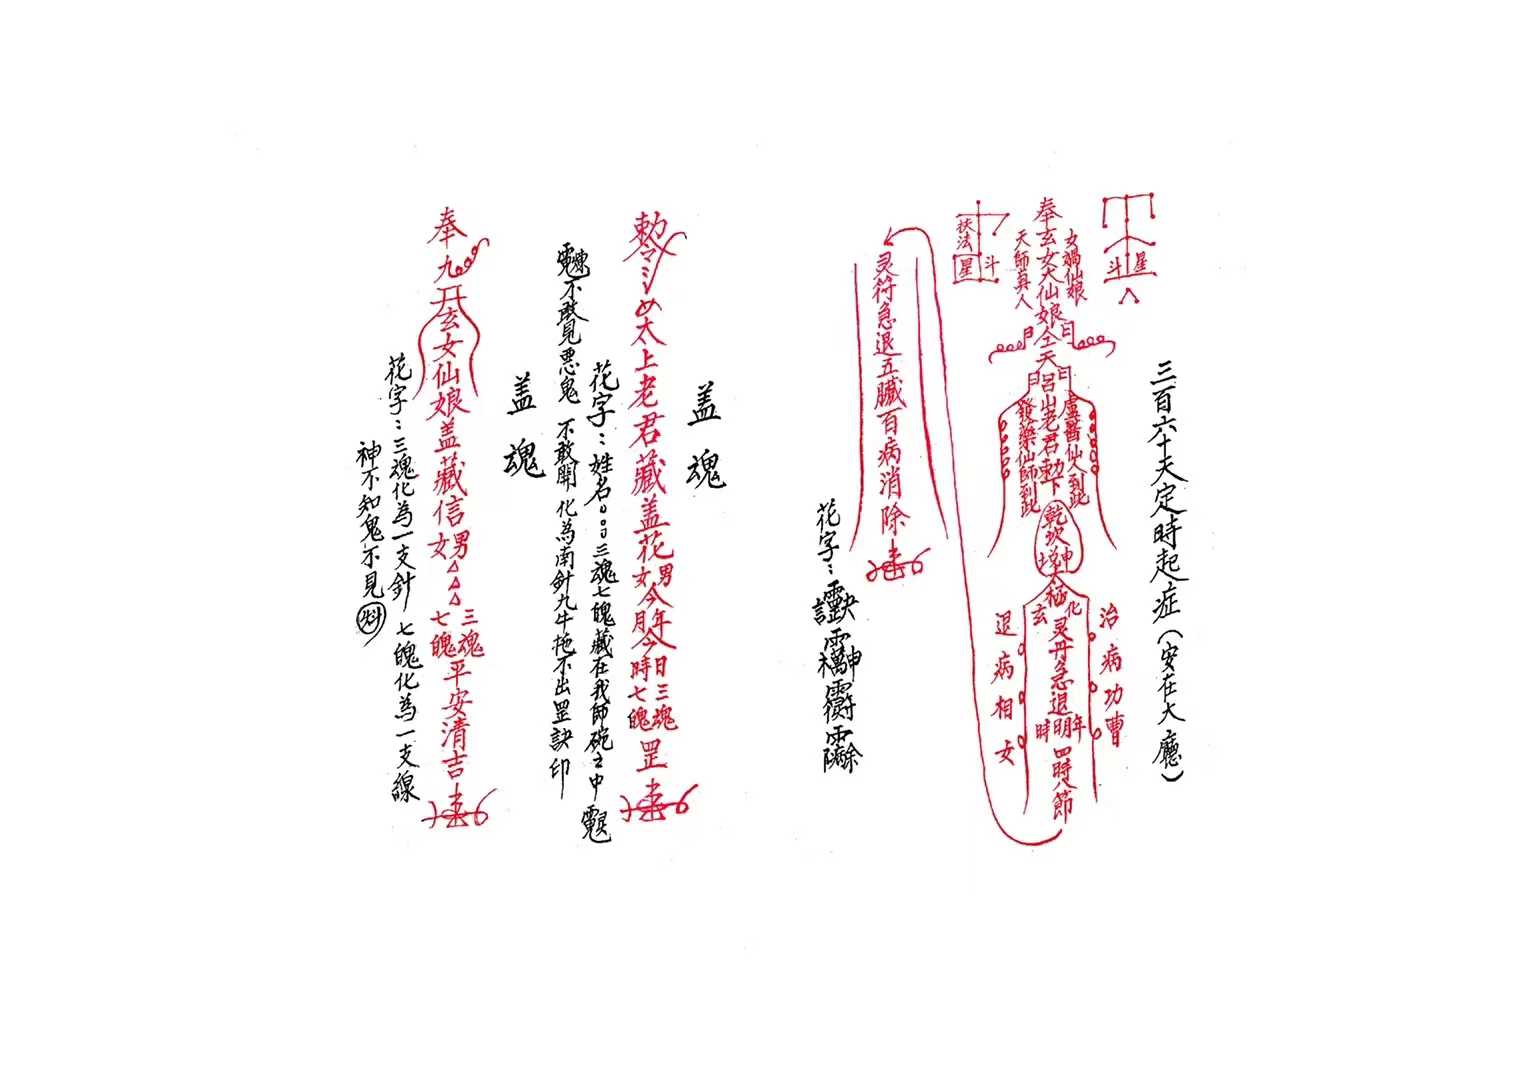 三百六十天定時起症（安在大廳）
斗星
女媧仙娘
奉玄女大仙娘仝天
天師真人
扶法
星斗
盧醫仙人到此
呂山老君勅下
發藥仙師到此
乾坎
坤
太極
化
玄
灵丹急退
年明時
四時八節
治病功曹
退病相女
灵符急退五臟百病消除
花字：
蓋魂
勅令太上老君藏蓋花男女今年今月今日時三魂七魄罡
花字：姓名。。。三魂七魄藏在我師碗之中
不敢見惡鬼不敢開化為南針九牛拖不出罡訣印
蓋魂
奉九天玄女仙娘蓋藏信男女△△△三魂七魄平安清吉
花字：三魂化為一支針七魄化為一支線
神不知鬼不見